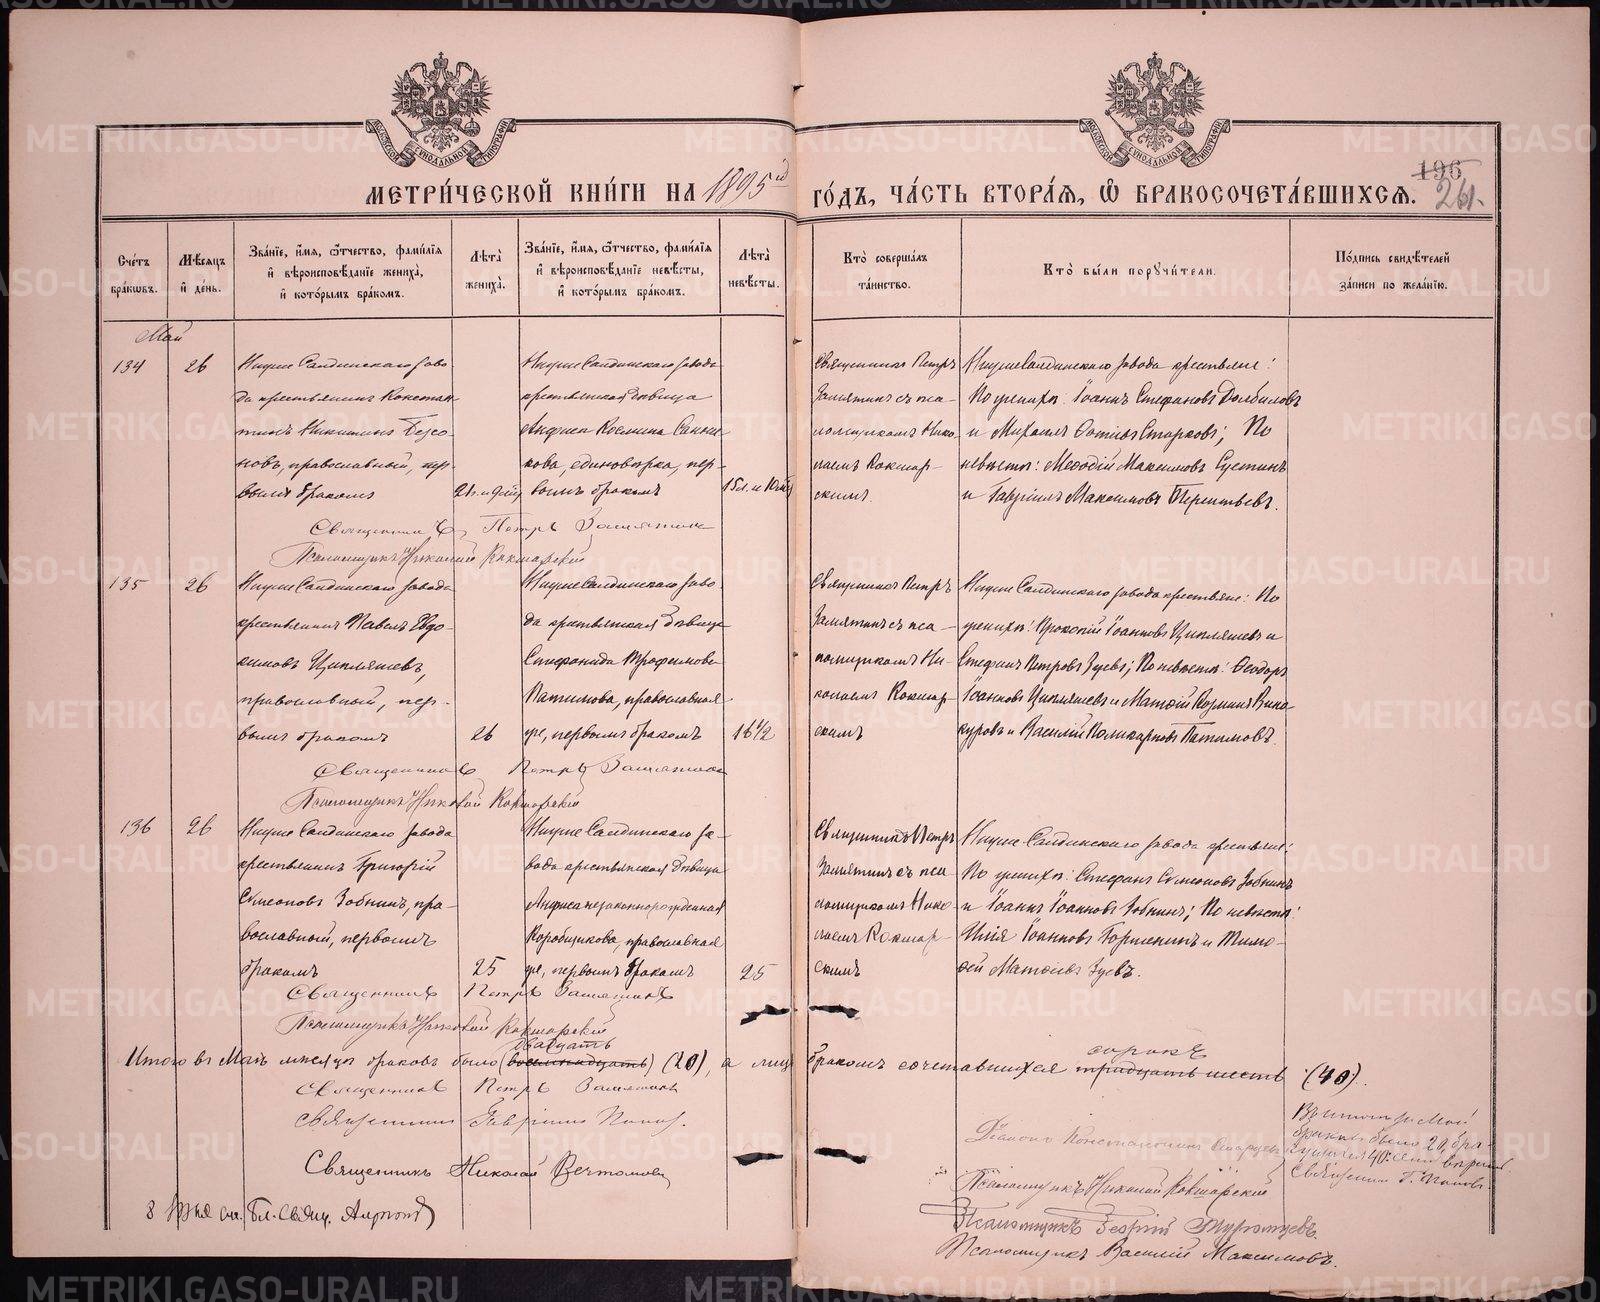 МЕТРИ́ЧЕСКОЙ КНИ́ГИ НА 1895й ГО́ДЪ, ЧА́СТЬ ВТОРА́Я, Ѡ БРАКОСОЧЕТА́ВШИХСЯ.
196
261.
Сче́тъ бра́кѡвъ.
Мѣ́сяцъ и́ де́нь.
Зва́нїе, и́мя, ѻ҆́тчество, фами́лїя и́ вѣроисповѣ́данїе жениха̀, и́ кото́рымъ бра́комъ.
Лѣ́та̀ жениха̀.
Зва́нїе, и́мя, ѻ҆́тчество, фами́лїя и́ вѣроисповѣ́данїе невѣ́сты, и́ кото́рымъ бра́комъ.
Лѣ́та̀ невѣ́сты.
Кто̀ соверша́лъ та́инство.
Кто̀ бы́ли порꙋчи́тели.
По́дпись свидѣ́телей за́писи по жела́нїю.
Май
134
26
Нижне Салдинскаго заво-
да крестьянинъ Констан-
тинъ Никитинъ
православный, пер-
вымъ бракомъ
Нижне Салдинскаго завода
крестьянская дѣвица
Анфиса Космина
единовѣрка, пер-
вымъ бракомъ
Священникъ Петръ
Замятинъ съ пса-
ломщикомъ Нико-
лаемъ Кокшар-
скимъ.
Нижне Салдинскаго завода крестьяне:
По женихѣ: Іоаннъ Стефановъ Долбиловъ
и Михаилъ Фотіевъ Старковъ; По
невѣстѣ: Меѳодій Максимовъ Сустинъ
и Гавріилъ Максимовъ Терентьевъ.
Священникъ Петръ Замятинъ
Псаломщикъ Николай Кокшарскій
135
26
Нижне Салдинскаго завода
крестьянинъ Павелъ Евдо-
кимовъ Ципляшевъ,
православный, пер-
вымъ бракомъ
26
Нижне Салдинскаго заво-
да крестьянская дѣвица
Стефанида Трофимова
Патимова, православная
же, первымъ бракомъ
16 1/2
Священникъ Петръ
Замятинъ съ пса-
ломщикомъ Ни-
колаемъ Кокшар-
скимъ
Нижне Салдинскаго завода крестьяне: По
женихѣ: Прокопій Іоанновъ Ципляшевъ и
Стефанъ Петровъ Зуевъ; По невѣстѣ: Ѳеодоръ
Іоанновъ Ципляшевъ и Матѳій Козминъ Вино-
куровъ и Василій Поликарповъ Патимовъ.
Священникъ Петръ Замятинъ
Псаломщикъ Николай Кокшарскій
136
26
Нижне Салдинскаго завода
крестьянинъ Григорій
Симеоновъ Зобнинъ, пра-
вославный, первымъ
бракомъ
25
Нижне Салдинскаго за-
вода крестьянская дѣвица
Анфиса незаконнорожденная
Коробщикова, православная
же, первымъ бракомъ
25
Священникъ Петръ
Замятинъ съ пса-
ломщикомъ Нико-
лаемъ Кокшар-
скимъ
Нижне-Салдинскаго завода крестьяне:
По женихѣ: Стефанъ Симеоновъ Зобнинъ
и Іоаннъ Іоанновъ Зобнинъ; По невѣстѣ:
Илія Іоанновъ Горшенинъ и Тимо-
ѳей Матѳіевъ Зуевъ.
Священникъ Петръ Замятинъ
Псаломщикъ Николай Кокшарскій
двадцать
сорокъ
Итого въ Маѣ мѣсяцѣ браковъ было (восемнадцать) (20), а лицъ бракомъ сочетавшихся тридцать шесть (40).
Священникъ Петръ Замятинъ
Священникъ Гавріилъ Поповъ.
Священникъ Николай
Діаконъ Константинъ
Псаломщикъ Николай Кокшарскій
Псаломщикъ Георгій
Псаломщикъ Василій Максимовъ.
Священникъ Г. Поповъ
Бл. Свящ.